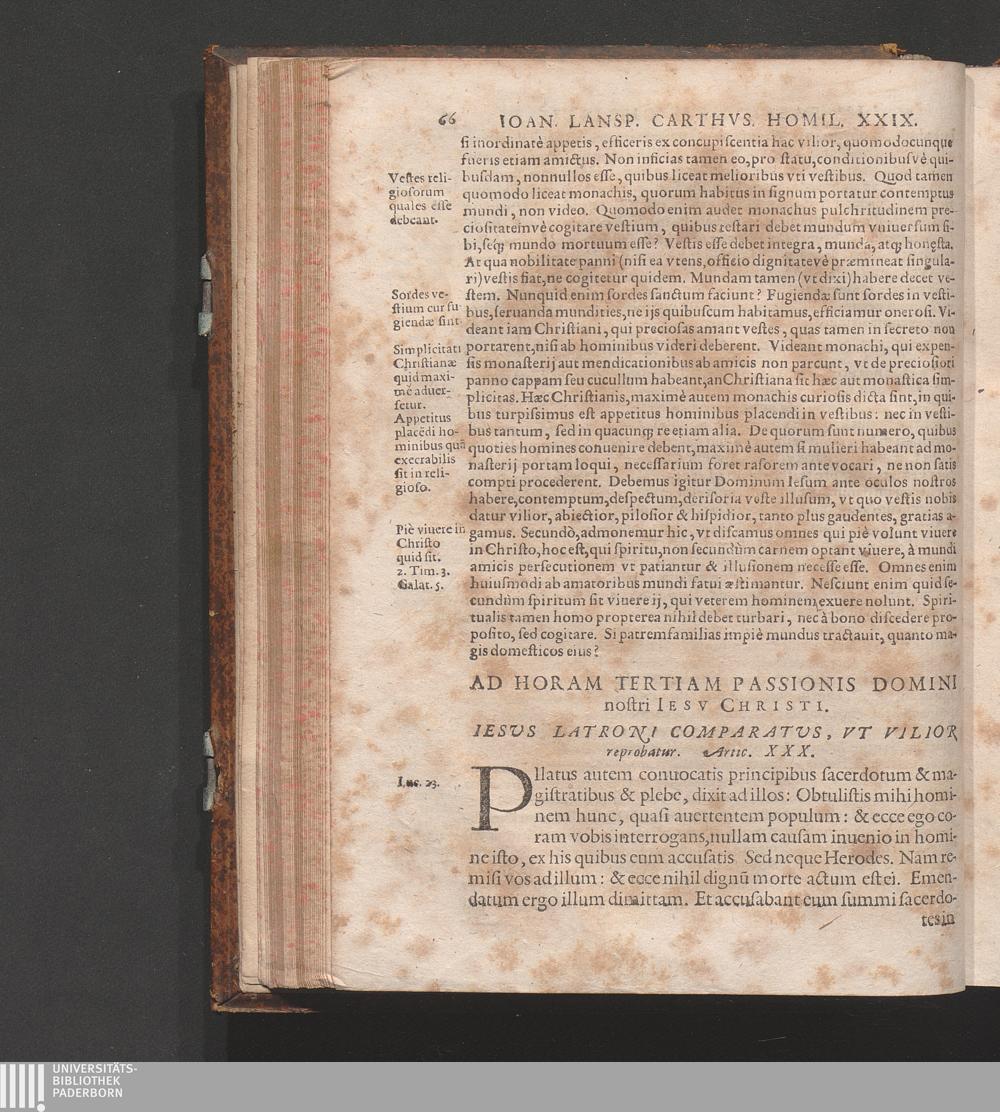 66 IOAN. LANSP. CARTHVS. HOMIL. XXIX.
si inordinatè appetis, efficeris ex concupiscentia hac vilior, quomodocunque
fueris etiam amictus. Non inficias tamen eo, pro statu, conditionibusvè qui-
busdam, nonnullos esse, quibus liceat melioribus vti vestibus. Quod tamen
quomodo liceat monachis, quorum habitus in signum portatur contemptus
mundi, non video. Quomodo enim audet monachus pulchritudinem pre-
ciositatemvè cogitare vestium, quibus testari debet mundum vniuersum si-
bi, seq; mundo mortuum esse? Vestis esse debet integra, munda, atq; honęsta.
At qua nobilitate panni (nisi ea vtens, officio dignitatevè præmineat singula-
ri) vestis fiat, ne cogitetur quidem. Mundam tamen (vt dixi) habere decet ve-
stem. Nunquid enim sordes sanctum faciunt? Fugiendæ sunt sordes in vesti-
bus, seruanda mundities, ne ijs quibuscum habitamus, efficiamur onerosi. Vi-
deant iam Christiani, qui preciosas amant vestes, quas tamen in secreto non
portarent, nisi ab hominibus videri deberent. Videant monachi, qui expen-
sis monasterij aut mendicationibus ab amicis non parcunt, vt de preciosiori
panno cappam seu cucullum habeant, an Christiana sit hæc aut monastica sim-
plicitas. Hæc Christianis, maximè autem monachis curiosis dicta sint, in qui-
bus turpissimus est appetitus hominibus placendi in vestibus: nec in vesti-
bus tantum, sed in quacunq; re etiam alia. De quorum sunt numero, quibus
quoties homines conuenire debent, maximè autem si mulieri habeant ad mo-
nasterij portam loqui, necessarium foret rasorem ante vocari, ne non satis
compti procederent. Debemus igitur Dominum Iesum ante oculos nostros
habere, contemptum, despectum, derisoria veste illusum, vt quo vestis nobis
datur vilior, abiectior, pilosior & hispidior, tanto plus gaudentes, gratias a-
gamus. Secundò, admonemur hic, vt discamus omnes qui piè volunt viuere
in Christo, hoc est, qui spiritu, non secundùm carnem optant viuere, à mundi
amicis persecutionem vt patiantur & illusionem necesse esse. Omnes enim
huiusmodi ab amatoribus mundi fatui æstimantur. Nesciunt enim quid se-
cundùm spiritum sit viuere ij, qui veterem hominem exuere nolunt. Spiri-
tualis tamen homo propterea nihil debet turbari, nec à bono discedere pro-
posito, sed cogitare. Si patremfamilias impiè mundus tractauit, quanto ma-
gis domesticos eius?
Vestes reli-
giosorum
quales esse
debeant.
Sordes ve-
stium cur fu
giendæ sint
Simplicitati
Christianæ
quid maxi-
mè aduer-
setur.
Appetitus
placēdi ho-
minibus quā
execrabilis
sit in reli-
gioso.
Piè viuere in
Christo
quid sit.
2. Tim. 3.
Galat. 5.
AD HORAM TERTIAM PASSIONIS DOMINI
nostri IESV CHRISTI.
IESVS LATRONI COMPARATVS, VT VILIOR
reprobatur. Artic. XXX.
Luc. 23.
PIlatus autem conuocatis principibus sacerdotum & ma-
gistratibus & plebe, dixit ad illos: Obtulistis mihi homi-
nem hunc, quasi auertentem populum: & ecce ego co-
ram vobis interrogans, nullam causam inuenio in homi-
ne isto, ex his quibus eum accusatis. Sed neque Herodes. Nam re-
misi vos ad illum: & ecce nihil dignū morte actum est ei. Emen-
datum ergo illum dimittam. Et accusabant eum summi sacerdo-
tes in
UNIVERSITÄTS-
BIBLIOTHEK
PADERBORN